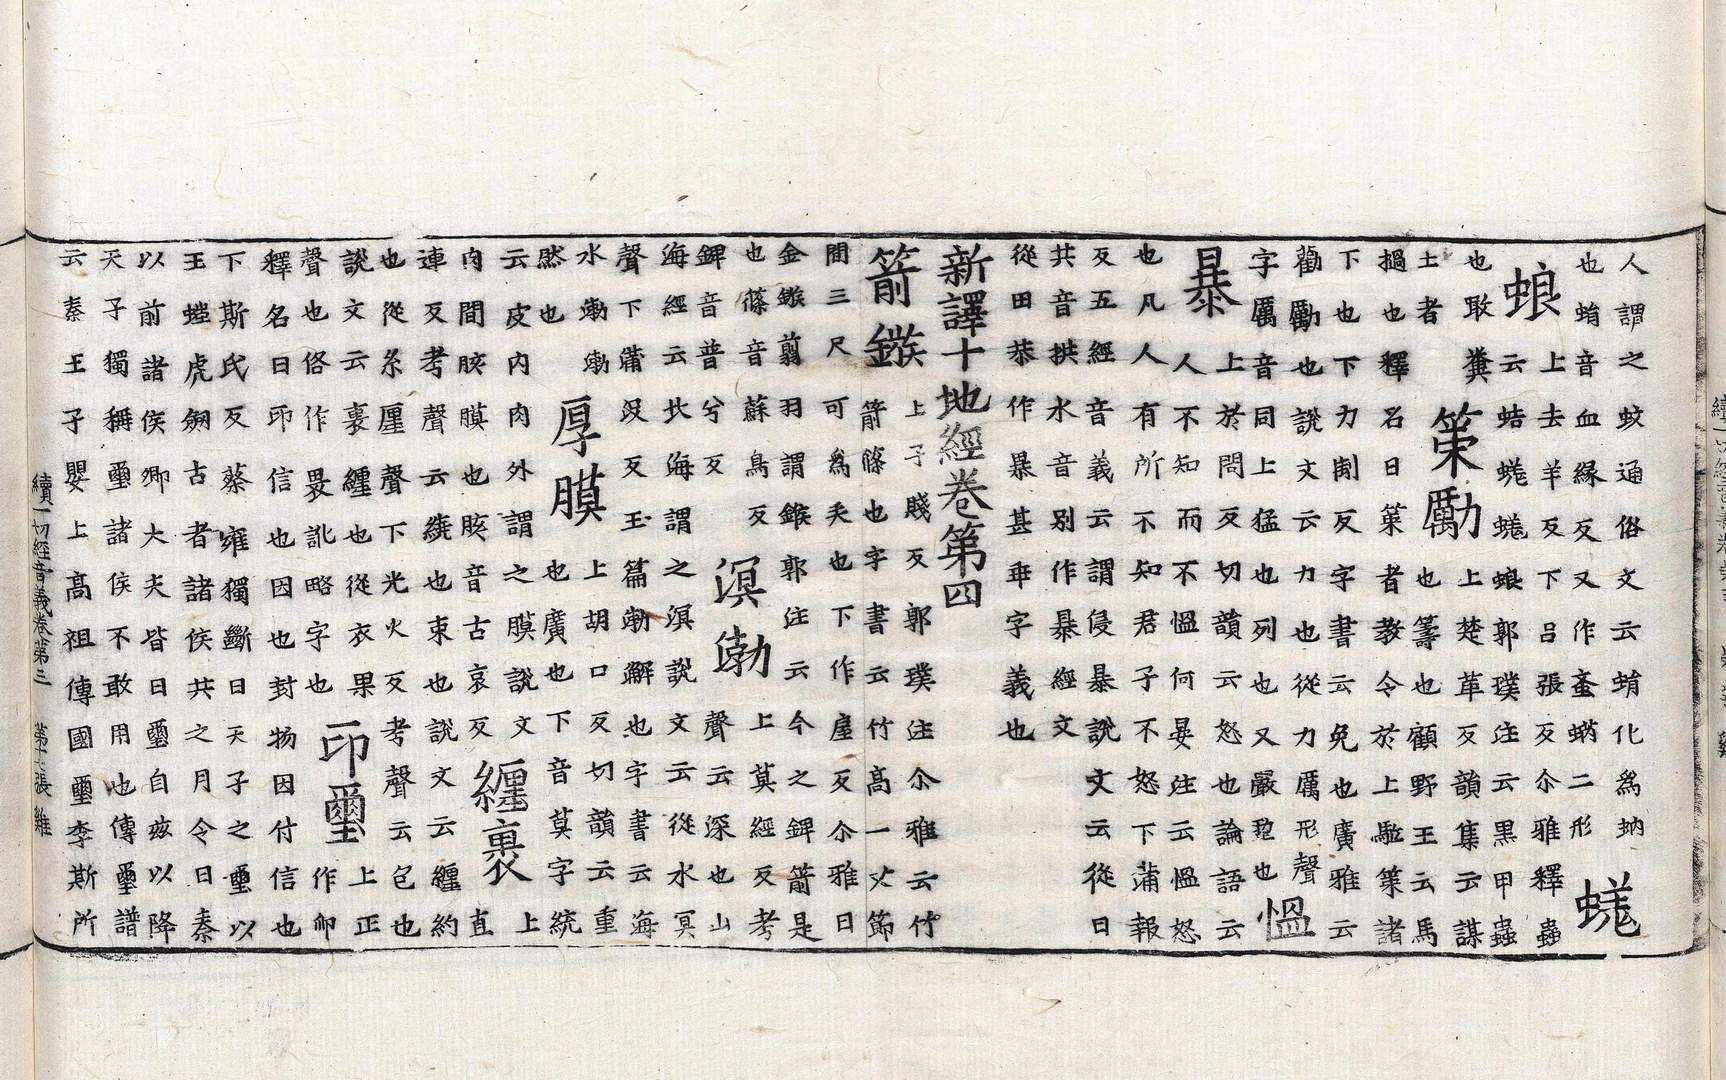 人謂之蚊通俗文云蜎化爲蚋
也蜎音血緣反又作䖟蜹二形
蜣蜋
上去羊反下呂張反尒雅釋蟲
云蛣蜣蜣蜋郭璞注云黑甲蟲
也敢糞
土者
策勵
上楚革反韻集云謀
也籌也顧野王云馬
檛也釋名曰策者教令於上駈策諸
下也下力制反字書云免也廣雅云
勸勵也說文云力也從力厲形聲
字厲音同上猛也烈也又嚴也
慍暴
上於問反切韻云怒也論語云
人不知而不慍何晏注云慍怒
也凡人有所不知君子不怒下蒲報
反五經音義云謂侵暴說文云從日
共音拱水音別作暴經文
從田恭作暴甚乖字義也
新譯十地經卷第四
箭鏃
上子賤反郭璞注尒雅云竹
箭篠也字書云竹高一丈節
間三尺可爲矢也下作屋反尒雅曰
金鏃翦羽謂鍭郭注云今之錍箭是
也篠音蘇鳥反
錍音普兮反
溟渤
上莫經反考
聲云深也山
海經云北海謂之溟說文云從水冥
聲下蒲沒反玉篇渤澥也字書云海
水渤渤
然也
厚膜
上胡口反切韻云重
也廣也下音莫字統
云皮內肉外謂之膜說文
肉間胲膜也胲音古哀反
纏裹
上直
連反考聲云繞也束也說文云纏約
也從糸厘聲下光火反考聲云包也
說文云裹纏也從衣果
聲也俗作褁訛略字也
印璽
上正
作卬
釋名曰印信也因也封物因付信也
下斯氏反蔡雍獨斷曰天子之璽以
玉螭虎紐古者諸侯共之月令曰秦
以前諸侯卿大夫皆曰璽自茲以降
天子獨稱璽諸侯不敢用也傳璽譜
云秦王子嬰上高祖傳國璽李斯所
續一切經音義卷第三 第十七張 雞